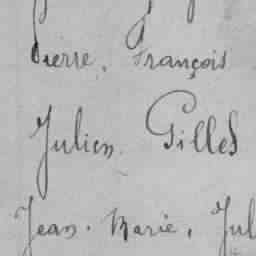 Pierre, François
Julien Gilles
Jean. Marie, Jul